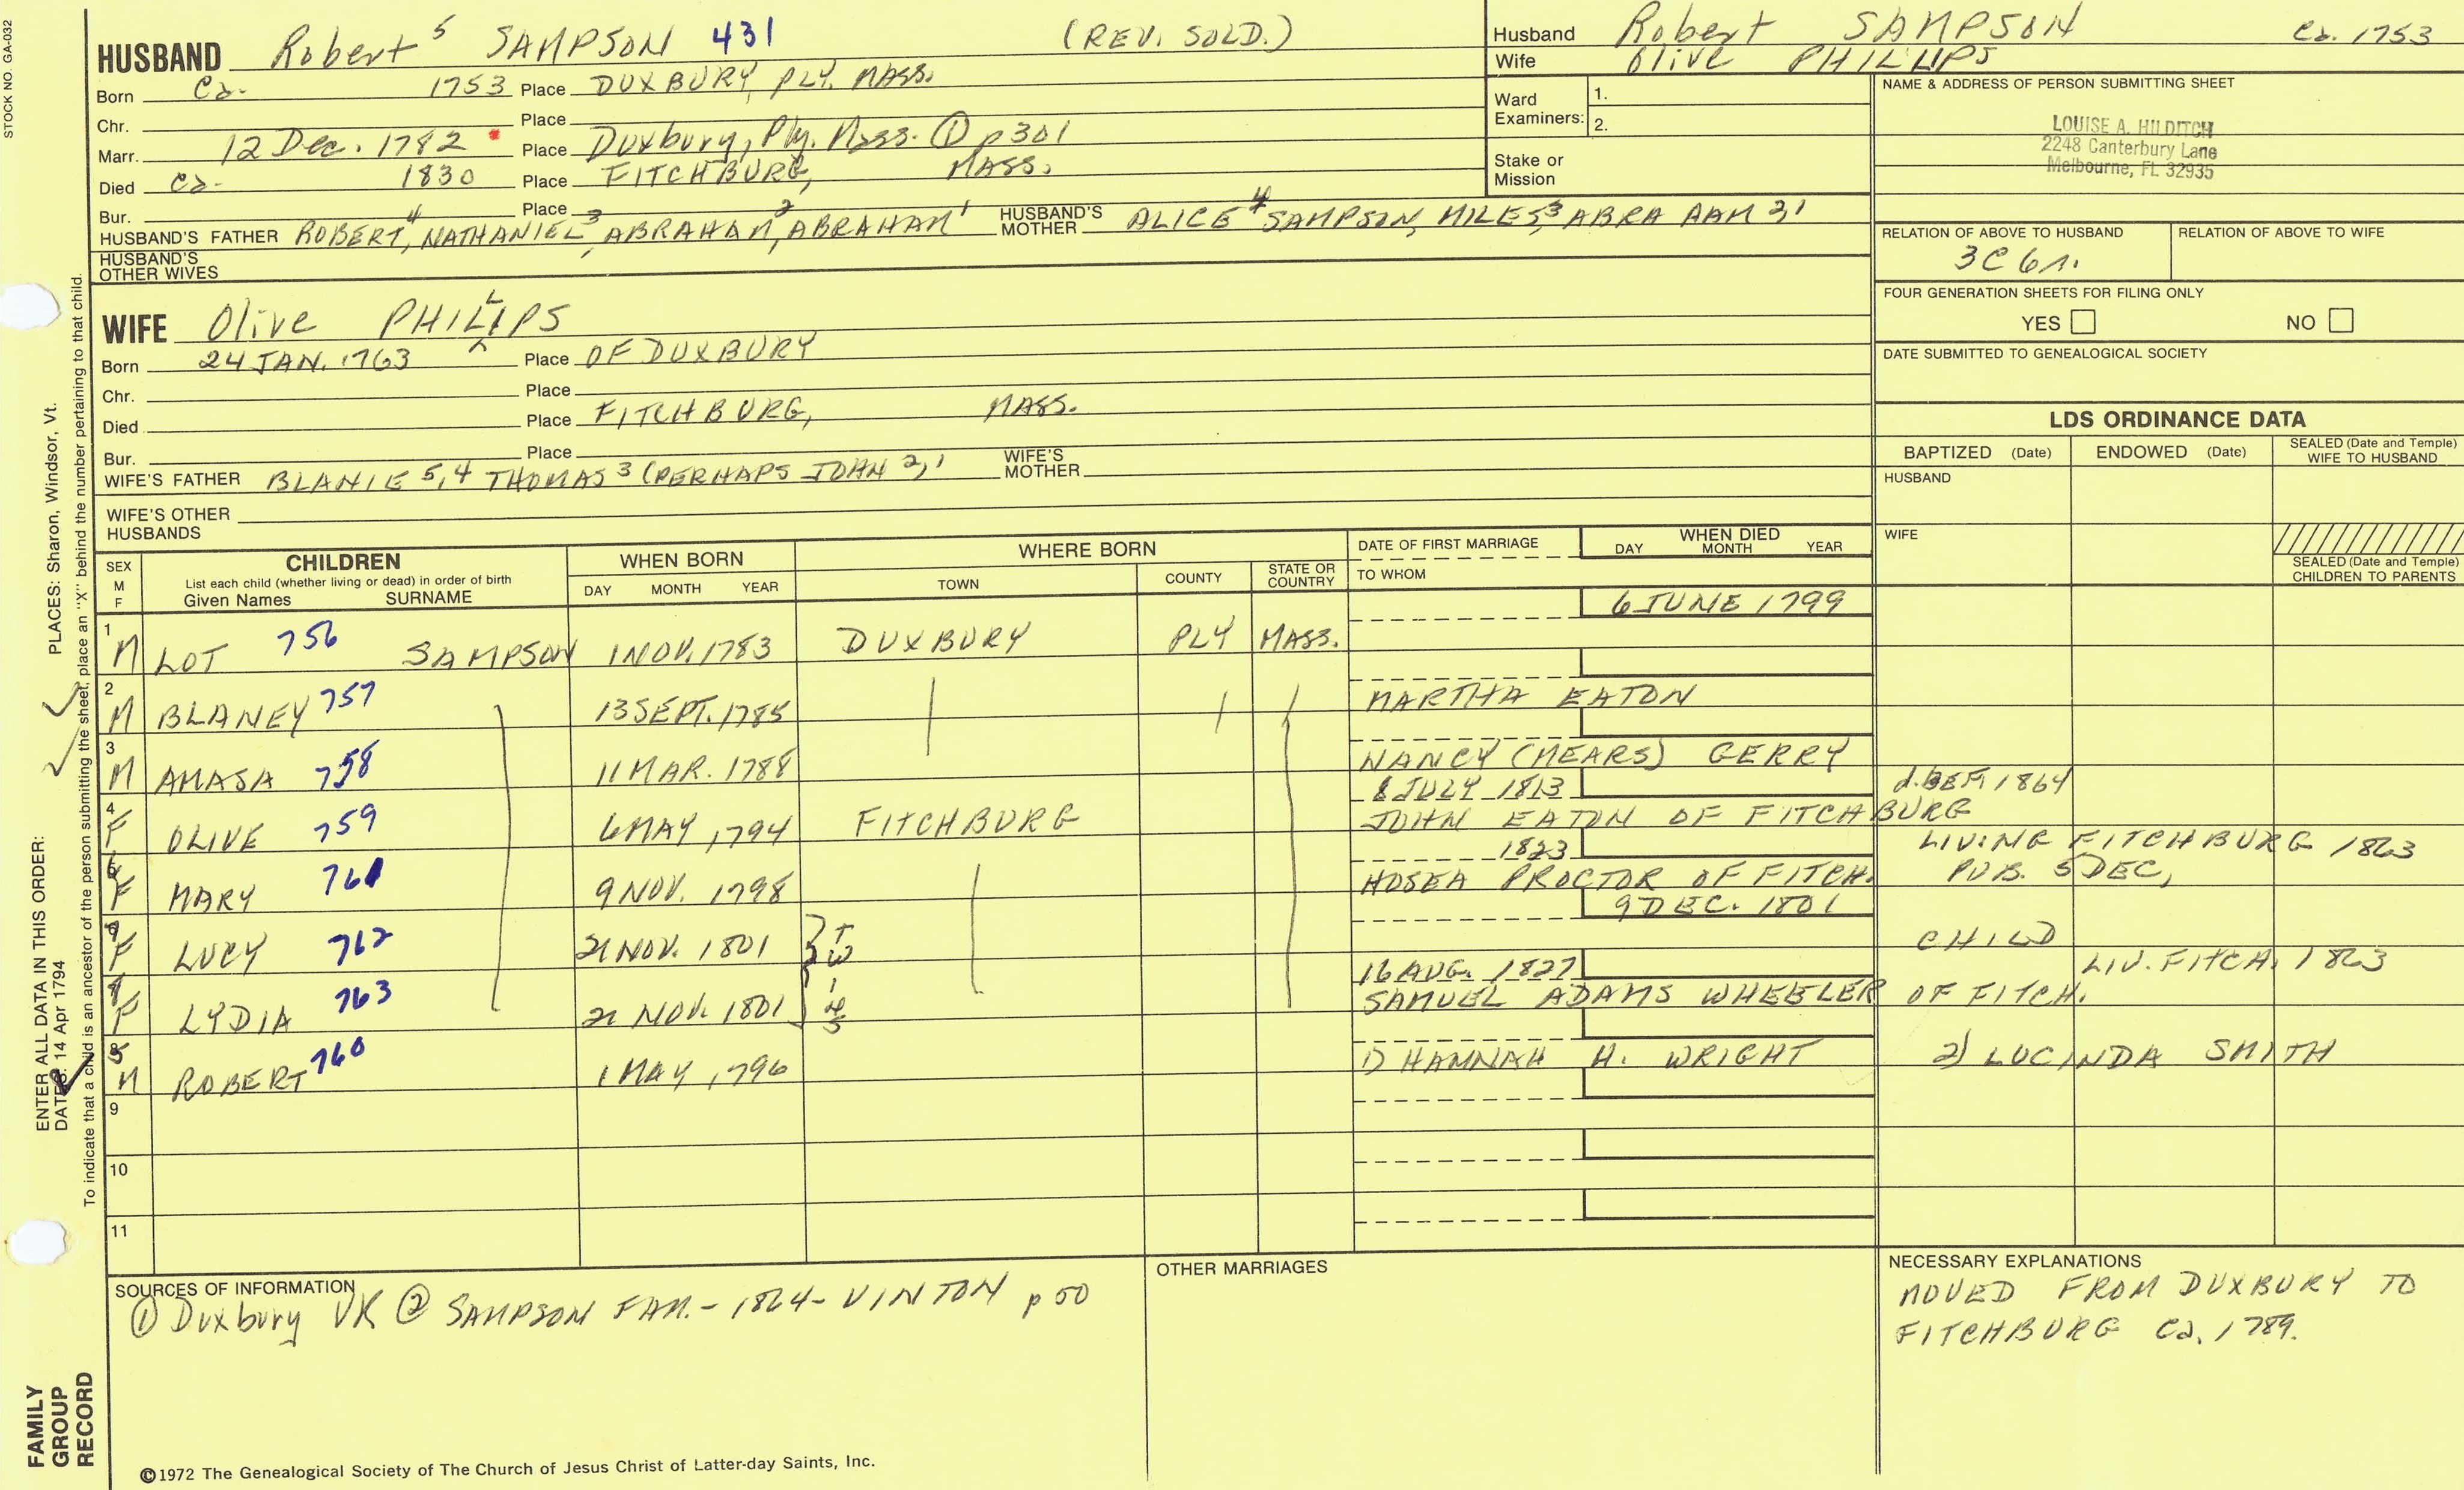 STOCK NO. GA-032
HUSBAND Robert 5 SAMPSON 431 (REV. SOLD.)
Born Ca. 1753 Place DUXBURY, PLY. MASS.
Chr. Place
Marr. 12 Dec. 1782 Place Duxbury, Ply. Mass. ① p301
Died Ca. 1830 Place FITCHBURG, MASS.
Bur. Place
HUSBAND'S FATHER ROBERT 4, NATHANIEL 3, ABRAHAM 2, ABRAHAM 1 HUSBAND'S MOTHER ALICE 4 SAMPSON, MILES 3, ABRAHAM 2,1
HUSBAND'S OTHER WIVES
Husband Robert SAMPSON Ca. 1753
Wife Olive PHILLIPS
Ward Examiners: 1.
2.
Stake or Mission
NAME & ADDRESS OF PERSON SUBMITTING SHEET
LOUISE A. HILDITCH
2248 Canterbury Lane
Melbourne, FL 32935
RELATION OF ABOVE TO HUSBAND RELATION OF ABOVE TO WIFE
3C 6r.
FOUR GENERATION SHEETS FOR FILING ONLY
YES NO
DATE SUBMITTED TO GENEALOGICAL SOCIETY
WIFE Olive PHILLIPS
Born 24 JAN. 1763 Place OF DUXBURY
Chr. Place
Died Place FITCHBURG, MASS.
Bur. Place
WIFE'S FATHER BLANIE 5,4 THOMAS 3 (PERHAPS JOHN 2,1 WIFE'S MOTHER
WIFE'S OTHER HUSBANDS
LDS ORDINANCE DATA
BAPTIZED (Date) ENDOWED (Date) SEALED (Date and Temple) WIFE TO HUSBAND
HUSBAND
WIFE
SEALED (Date and Temple) CHILDREN TO PARENTS
SEX M F CHILDREN WHEN BORN WHERE BORN DATE OF FIRST MARRIAGE WHEN DIED
List each child (whether living or dead) in order of birth
Given Names SURNAME DAY MONTH YEAR TOWN COUNTY STATE OR COUNTRY TO WHOM DAY MONTH YEAR
6 JUNE 1799
1 M LOT 756 SAMPSON 1 NOV. 1783 DUXBURY PLY MASS.
2 M BLANEY 757 13 SEPT. 1785 MARTHA EATON
3 M AMASA 758 11 MAR. 1788 NANCY (MEARS) GERRY
8 JULY 1813 d. BEF. 1864
4 F OLIVE 759 6 MAY 1794 FITCHBURG JOHN EATON OF FITCHBURG
1823 LIVING FITCHBURG 1863
6 F MARY 761 9 NOV. 1798 HOSEA PROCTOR OF FITCH. PUB. 5 DEC,
9 DEC. 1801
7 F LUCY 762 21 NOV. 1801 TWINS CHILD
16 AUG. 1827 LIV. FITCH. 1863
8 F LYDIA 763 21 NOV. 1801 SAMUEL ADAMS WHEELER OF FITCH.
5 M ROBERT 760 1 MAY 1796 1) HANNAH H. WRIGHT 2) LUCINDA SMITH
9
10
11
SOURCES OF INFORMATION
① Duxbury VR ② SAMPSON FAM. - 1864 - VINTON p 50
OTHER MARRIAGES
NECESSARY EXPLANATIONS
MOVED FROM DUXBURY TO
FITCHBURG Ca. 1789.
©1972 The Genealogical Society of The Church of Jesus Christ of Latter-day Saints, Inc.
FAMILY
GROUP
RECORD
ENTER ALL DATA IN THIS ORDER: PLACES: Sharon, Windsor, Vt.
DATES: 14 Apr 1794
To indicate that a child is an ancestor of the person submitting the sheet, place an "X" behind the number pertaining to that child.